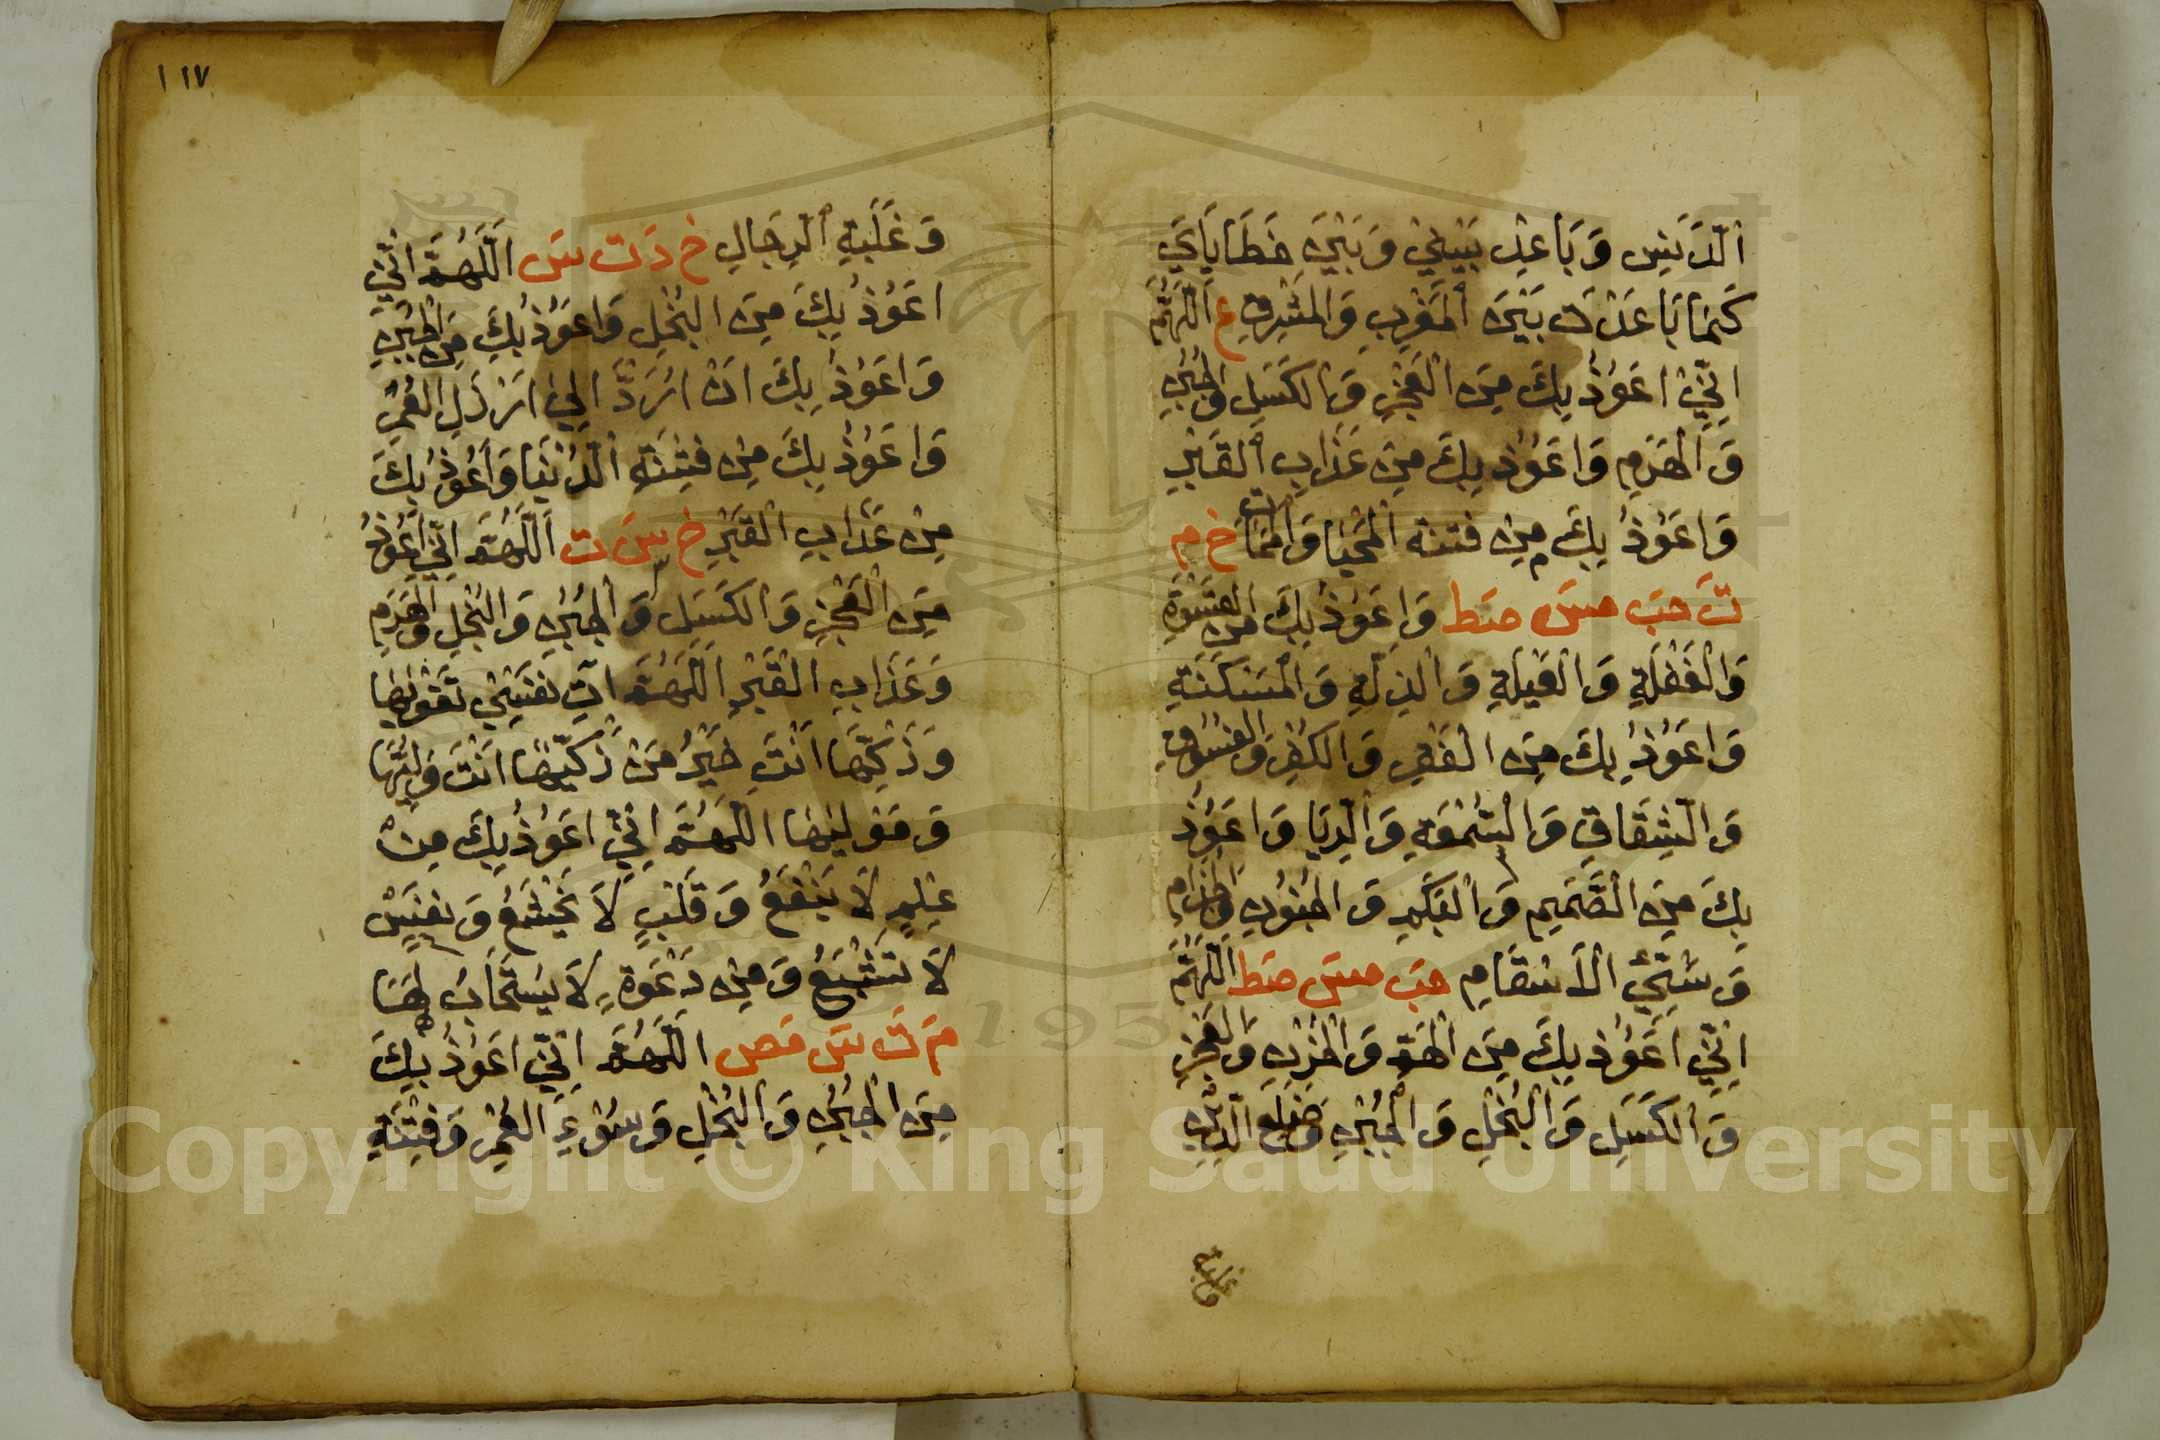 الدَّنَسِ وَبَاعِدْ بَيْنِيْ وَبَيْنَ خَطَايَايَ
كَمَا بَاعَدْتَ بَيْنَ الْمَغْرِبِ وَالْمَشْرِقِ ع اَللَّهُمَّ
اِنِّيْ اَعُوْذُ بِكَ مِنَ الْعَجْزِ وَالْكَسَلِ وَالْجُبْنِ
وَالْهَرَمِ وَاَعُوْذُ بِكَ مِنْ عَذَابِ الْقَبْرِ
وَاَعُوْذُ بِكَ مِنْ فتنة الْمَحْيَا وَالْمَمَاتِ خ م
ت حب مس صط وَاَعُوْذُ بِكَ مِنَ الْقَسْوَةِ
وَالْغَفْلَةِ وَالْعَيْلَةِ وَالذِّلَّةِ وَالْمَسْكَنَةِ
وَاَعُوْذُ بِكَ مِنَ الْفَقْرِ وَالْكُفْرِ وَالْفُسُوْقِ
وَالشِّقَاقِ وَالسُّمْعَةِ وَالرِّيَا وَاَعُوْذُ
بِكَ مِنَ الصَّمَمِ وَالْبَكَمِ وَالْجُنُوْنِ وَالْجُذَامِ
وَسَيِّئِ الْاَسْقَامِ حب مس صط اَللَّهُمَّ
اِنِّيْ اَعُوْذُ بِكَ مِنَ الْهَمِّ وَالْحُزْنِ وَالْعَجْزِ
وَالْكَسَلِ وَالْبُخْلِ وَالْجُبْنِ وَضَلَعِ الدَّيْنِ
وغلبة
١١٧
وَغَلَبَةِ الرِّجَالِ خ د ت س اَللَّهُمَّ اِنِّيْ
اَعُوْذُ بِكَ مِنَ الْبُخْلِ وَاَعُوْذُ بِكَ مِنَ الْجُبْنِ
وَاَعُوْذُ بِكَ اَنْ اُرَدَّ اِلٰى اَرْذَلِ الْعُمُرِ
وَاَعُوْذُ بِكَ مِنْ فِتْنَةِ الدُّنْيَا وَاَعُوْذُ بِكَ
مِنْ عَذَابِ الْقَبْرِ خ س ت اَللَّهُمَّ اِنِّيْ اَعُوْذُ
مِنَ الْعَجْزِ وَالْكَسَلِ وَالْجُبْنِ وَالْبُخْلِ وَالْهَرَمِ
وَعَذَابِ الْقَبْرِ اَللَّهُمَّ اٰتِ نَفْسِيْ تَقْوٰيهَا
وَزَكِّهَا اَنْتَ خَيْرُ مَنْ زَكّٰيهَا اَنْتَ وَلِيُّهَا
وَمَوْلٰيهَا اَللَّهُمَّ اِنِّيْ اَعُوْذُ بِكَ مِنْ
عِلْمٍ لَا يَنْفَعُ وَقَلْبٍ لَا يَخْشَعُ وَنَفْسٍ
لَا تَشْبَعُ وَمِنْ دَعْوَةٍ لَا يُسْتَجَابُ لَهَا
م ت س مص اَللَّهُمَّ اِنِّيْ اَعُوْذُ بِكَ
مِنَ الْجُبْنِ وَالْبُخْلِ وَسُوْءِ الْعُمُرِ وَفِتْنَةِ
Copyright © King Saud University
195